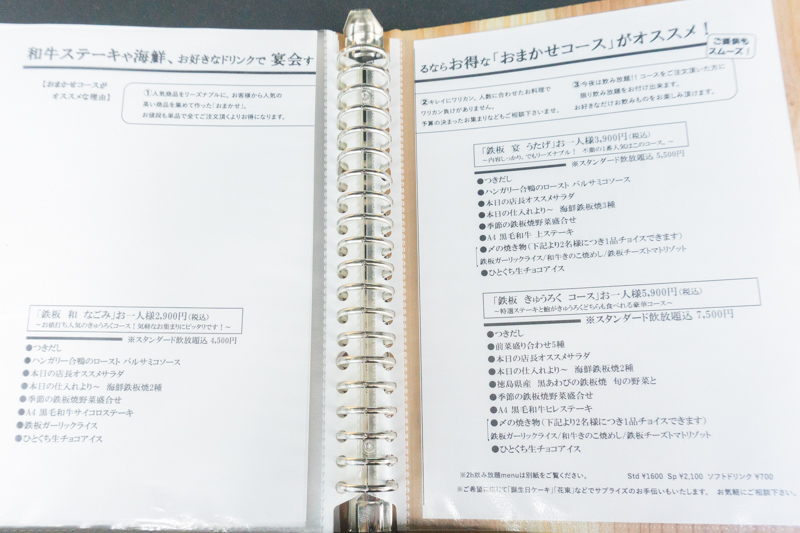 和牛ステーキや海鮮、お好きなドリンクで 宴会す
【おまかせコースが
オススメな理由】
①人気商品をリーズナブルに、お客様から人気の
高い商品を集めて作った「おまかせ」。
お値段も単品で全てご注文頂くよりお得になります。
「鉄板 和 なごみ」お一人様2,900円(税込)
～お値打ち人気のきゅうろくコース！気軽なお集まりにピッタリです！～
※スタンダード飲放題込 4,500円
●つきだし
●ハンガリー合鴨のロースト バルサミコソース
●本日の店長オススメサラダ
●本日の仕入れより～ 海鮮鉄板焼2種
●季節の鉄板焼野菜盛合せ
●A4 黒毛和牛サイコロステーキ
●鉄板ガーリックライス
●ひとくち生チョコアイス
るならお得な「おまかせコース」がオススメ！
ご幹事も
スムーズ！
②キレイにワリカン。人数に合わせたお料理で
ワリカン負けがありません。
予算の決まったお集まりなどもご相談下さいませ。
③今夜は飲み放題!! コースをご注文頂いた方に
限り飲み放題をお付け出来ます。
お好きなだけお飲みものをお楽しみ頂けます。
「鉄板 宴 うたげ」お一人様3,900円(税込)
～内容しっかり。でもリーズナブル！ 不動の1番人気はこのコース。～
※スタンダード飲放題込 5,500円
●つきだし
●ハンガリー合鴨のロースト バルサミコソース
●本日の店長オススメサラダ
●本日の仕入れより～ 海鮮鉄板焼3種
●季節の鉄板焼野菜盛合せ
●A4 黒毛和牛 上ステーキ
●〆の焼き物（下記より2名様につき1品チョイスできます）
鉄板ガーリックライス/和牛きのこ焼めし/鉄板チーズトマトリゾット
●ひとくち生チョコアイス
「鉄板 きゅうろく コース」お一人様5,900円(税込)
～特選ステーキと鮑がきゅうろくどちらも食べれる豪華コース～
※スタンダード飲放題込 7,500円
●つきだし
●前菜盛り合わせ5種
●本日の店長オススメサラダ
●本日の仕入れより～ 海鮮鉄板焼2種
●徳島県産 黒あわびの鉄板焼 旬の野菜と
●季節の鉄板焼野菜盛合せ
●A4 黒毛和牛ヒレステーキ
●〆の焼き物（下記より2名様につき1品チョイスできます）
鉄板ガーリックライス/和牛きのこ焼めし/鉄板チーズトマトリゾット
●ひとくち生チョコアイス
※2h飲み放題menuは別紙をご覧ください。 Std ¥1600 Sp ¥2,100 ソフトドリンク ¥700
※ご希望に応じて「誕生日ケーキ」「花束」などでサプライズのお手伝いもいたします。 お気軽にご相談下さい。